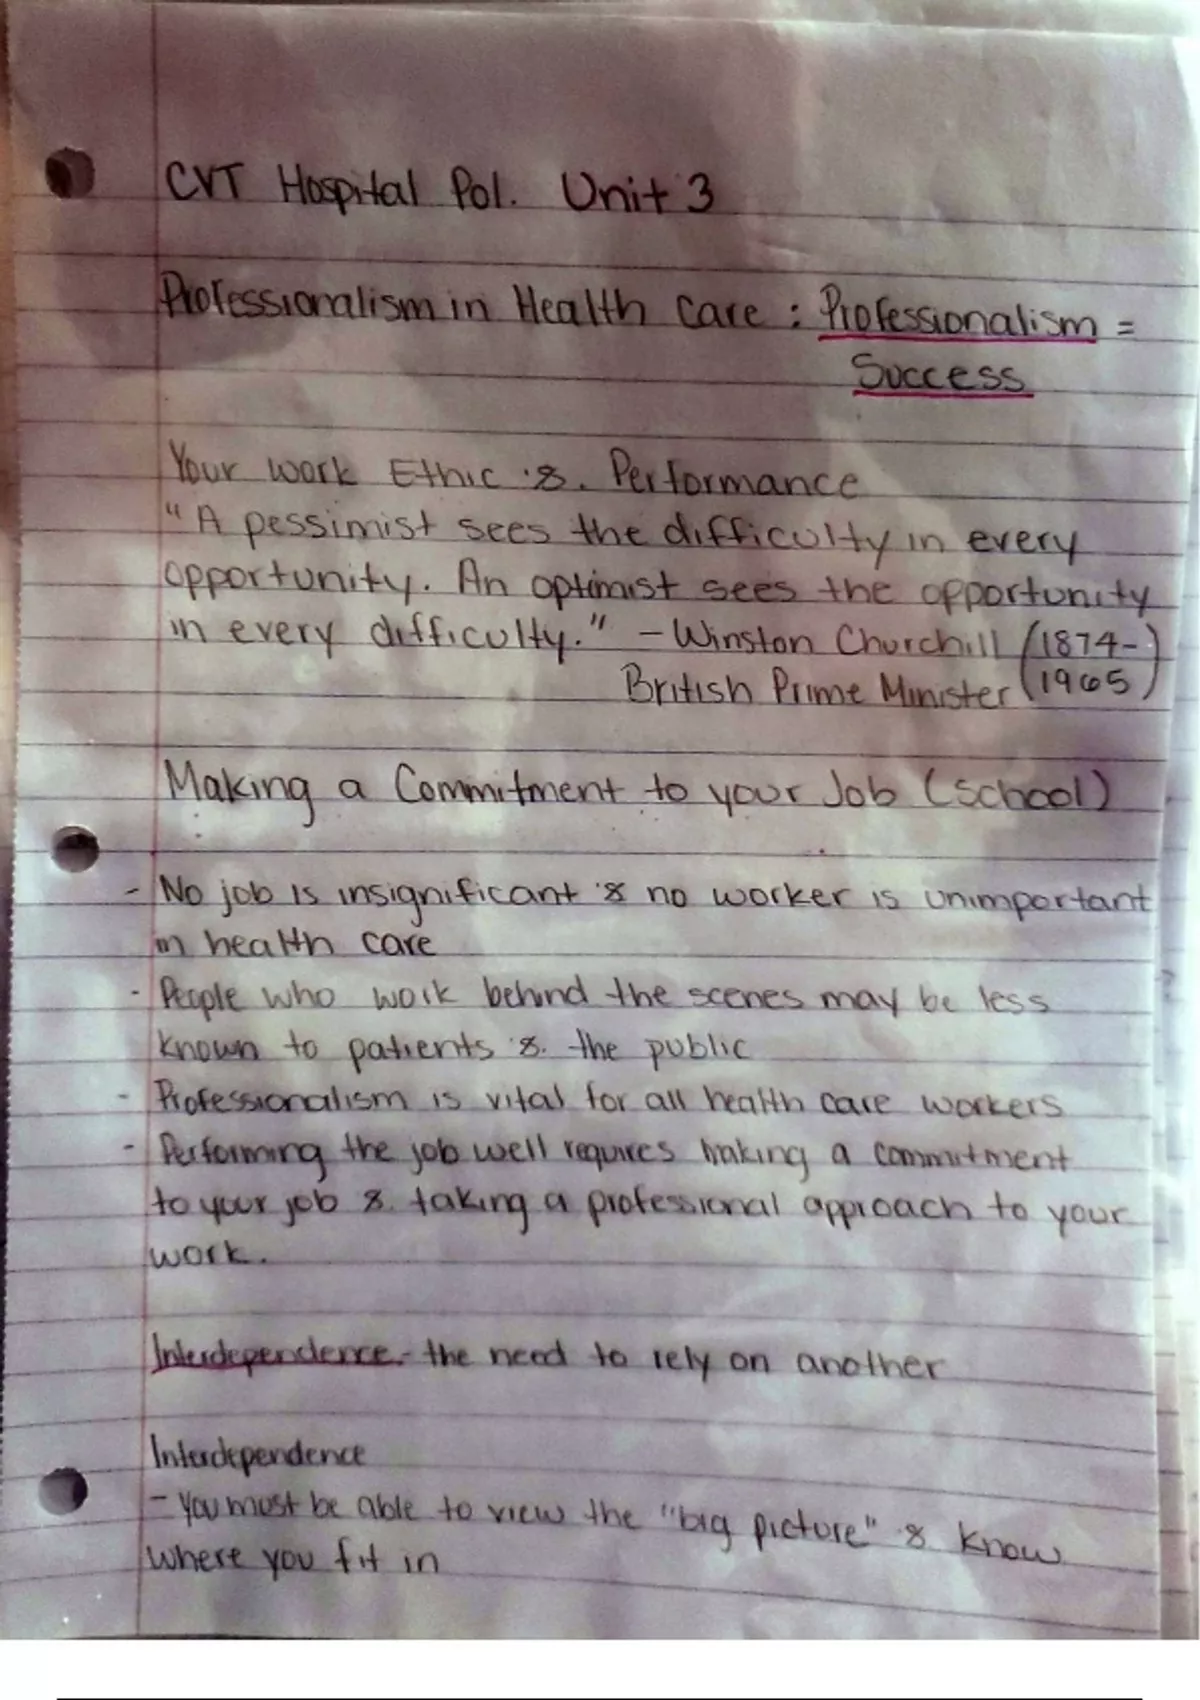 CVT Hospital Pol. Unit 3
Professionalism in Health Care : Professionalism =
Success
Your Work Ethic & Performance
"A pessimist sees the difficulty in every
opportunity. An optimist sees the opportunity
in every difficulty." - Winston Churchill (1874-
British Prime Minister 1965)
Making a Commitment to your Job (School)
- No job is insignificant & no worker is unimportant
in health care
- People who work behind the scenes may be less
known to patients & the public
- Professionalism is vital for all health care workers
- Performing the job well requires making a commitment
to your job & taking a professional approach to your
work.
Interdependence - the need to rely on another
Interdependence
- You must be able to view the "big picture" & know
where you fit in